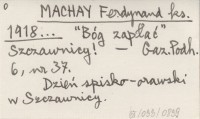 MACHAY Ferdynand ks.
1918... "Bóg zapłać"
Szczawnicy! — Gaz. Podh.
6, nr 37.
Dzień spisko-orawski
w Szczawnicy.